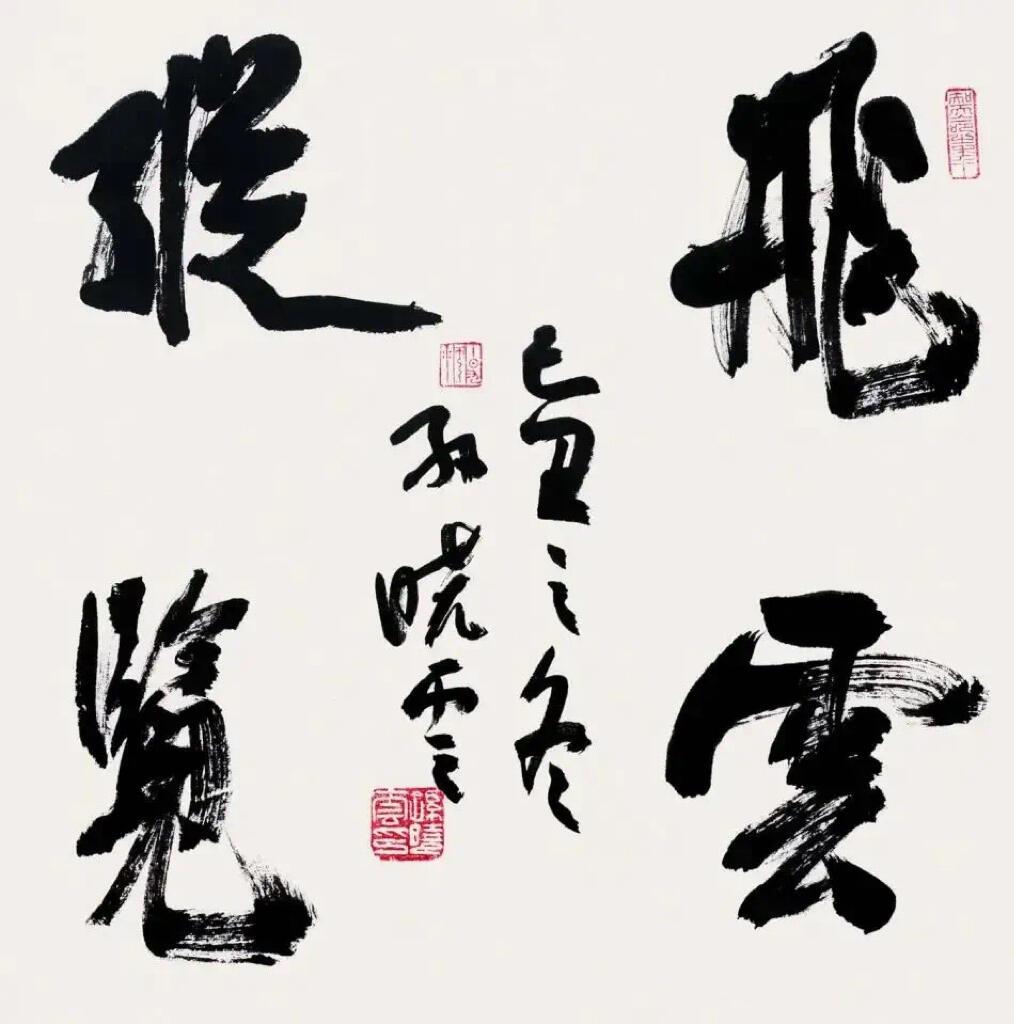 飛雲
縱覽
己丑之冬
孫曉雲
孫曉雲印